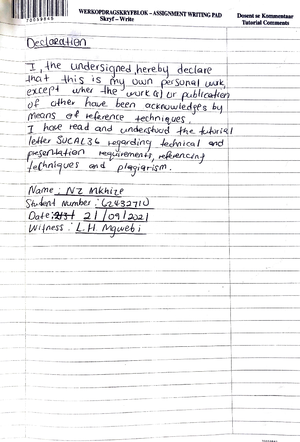 WERKOPDRAGSKRYFBLOK – ASSIGNMENT WRITING PAD
Skryf – Write
Dosent se Kommentaar
Tutorial Comments
Declaration
I, the undersigned, hereby declare
that this is my own personal work,
except wher the work(s) or publication
of other have been acknowledges by
means of reference techniques.
I have read and understood the tutorial
letter SUCAL36 regarding technical and
presentation requirements, referencing
techniques and plagiarism.
Name : NZ Mkhize
Student number : 62432710
Date: 21/09/2021
Witness : L.H. Mgwebi